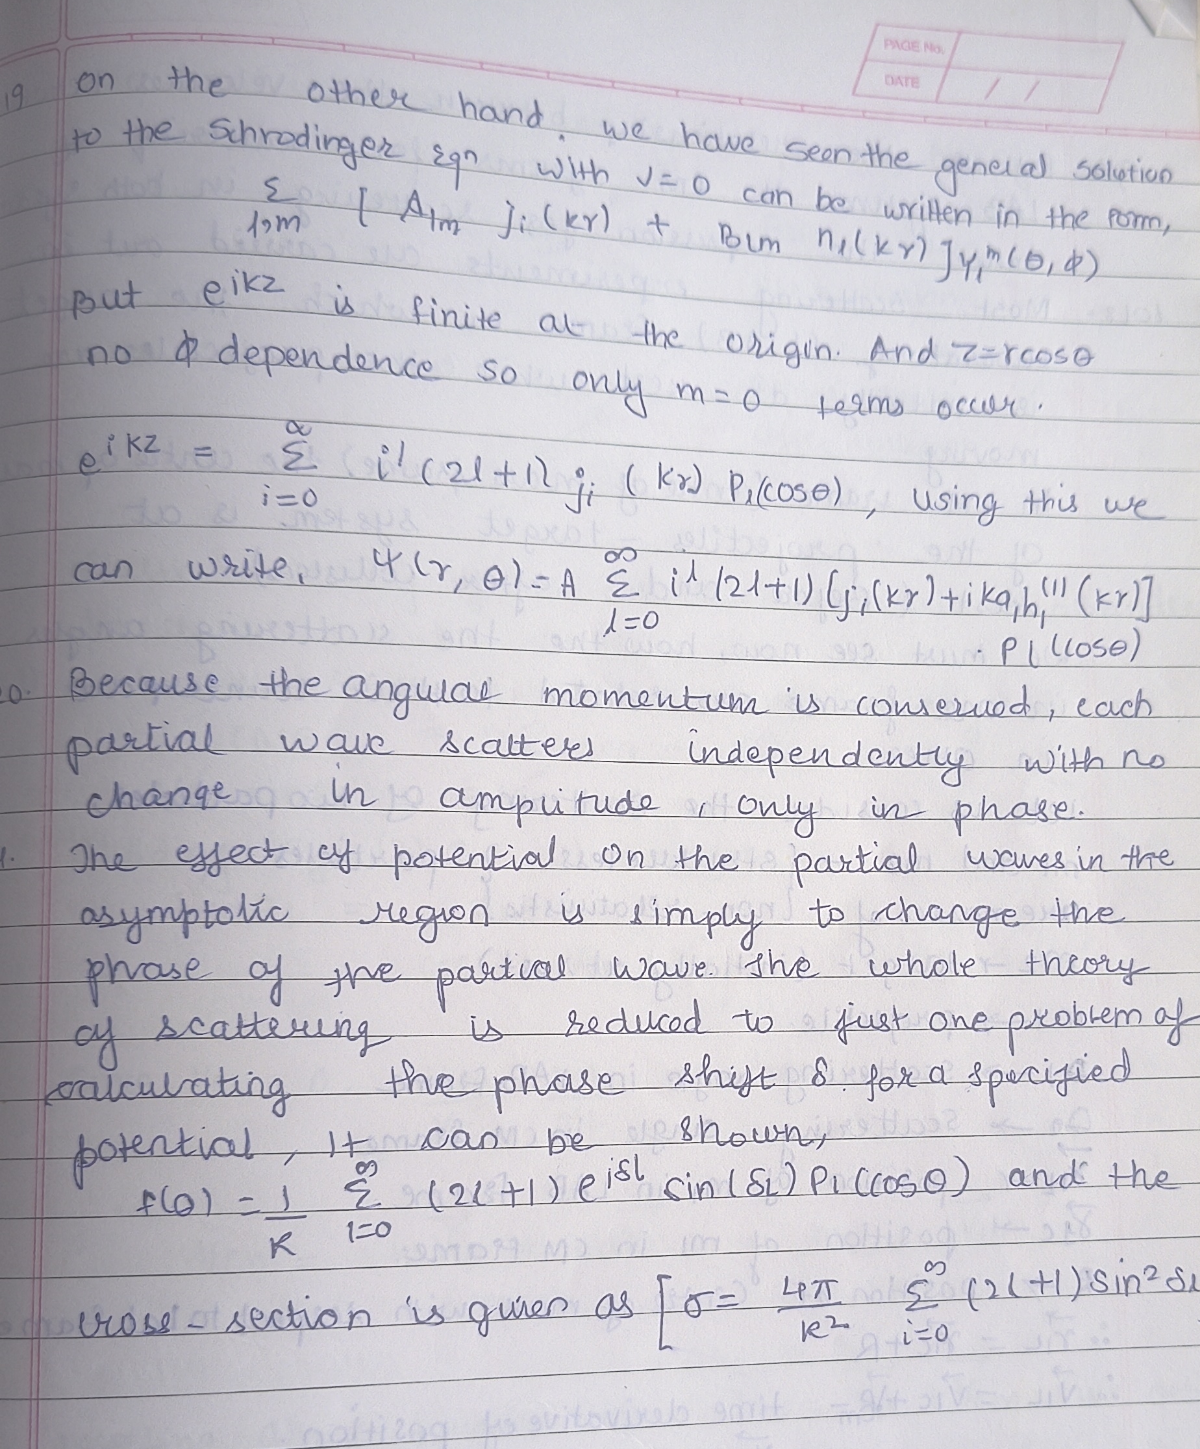 PAGE No.
DATE / /
19 on the other hand, we have seen the general solution
to the Schrodinger Eqn with V=0 can be written in the form,
Σ l,m [ Alm jl (kr) + Blm nl (kr) ] Yl^m (θ, φ)
But e^ikz is finite at the origin. And z=rcosθ
no φ dependence so only m=0 terms occur.
e^ikz = Σ i=0 ∞ i^l (2l+1) jl (kr) Pl(cosθ), using this we
can write, Ψ(r, θ) = A Σ l=0 ∞ i^l (2l+1) [jl(kr)+ikal hl^(1) (kr)]
. Pl (cosθ)
0. Because the angular momentum is conserved, each
partial wave scatters independently with no
change in amplitude, only in phase.
1. The effect of potential on the partial waves in the
asymptotic region is simply to change the
phase of the partial wave. The whole theory
of scattering is reduced to just one problem of
calculating the phase shift δ. for a specified
potential, It can be shown,
f(θ) = 1/k Σ l=0 ∞ (2l+1) e^iδl sin(δl) Pl(cosθ) and the
cross-section is given as [σ= 4π/k² Σ i=0 ∞ (2l+1) sin² δl